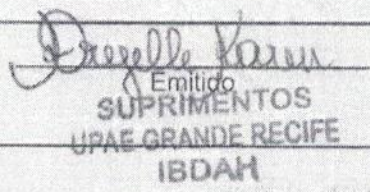 Drezelle Karen
Emitido
SUPRIMENTOS
UPAE GRANDE RECIFE
IBDAH